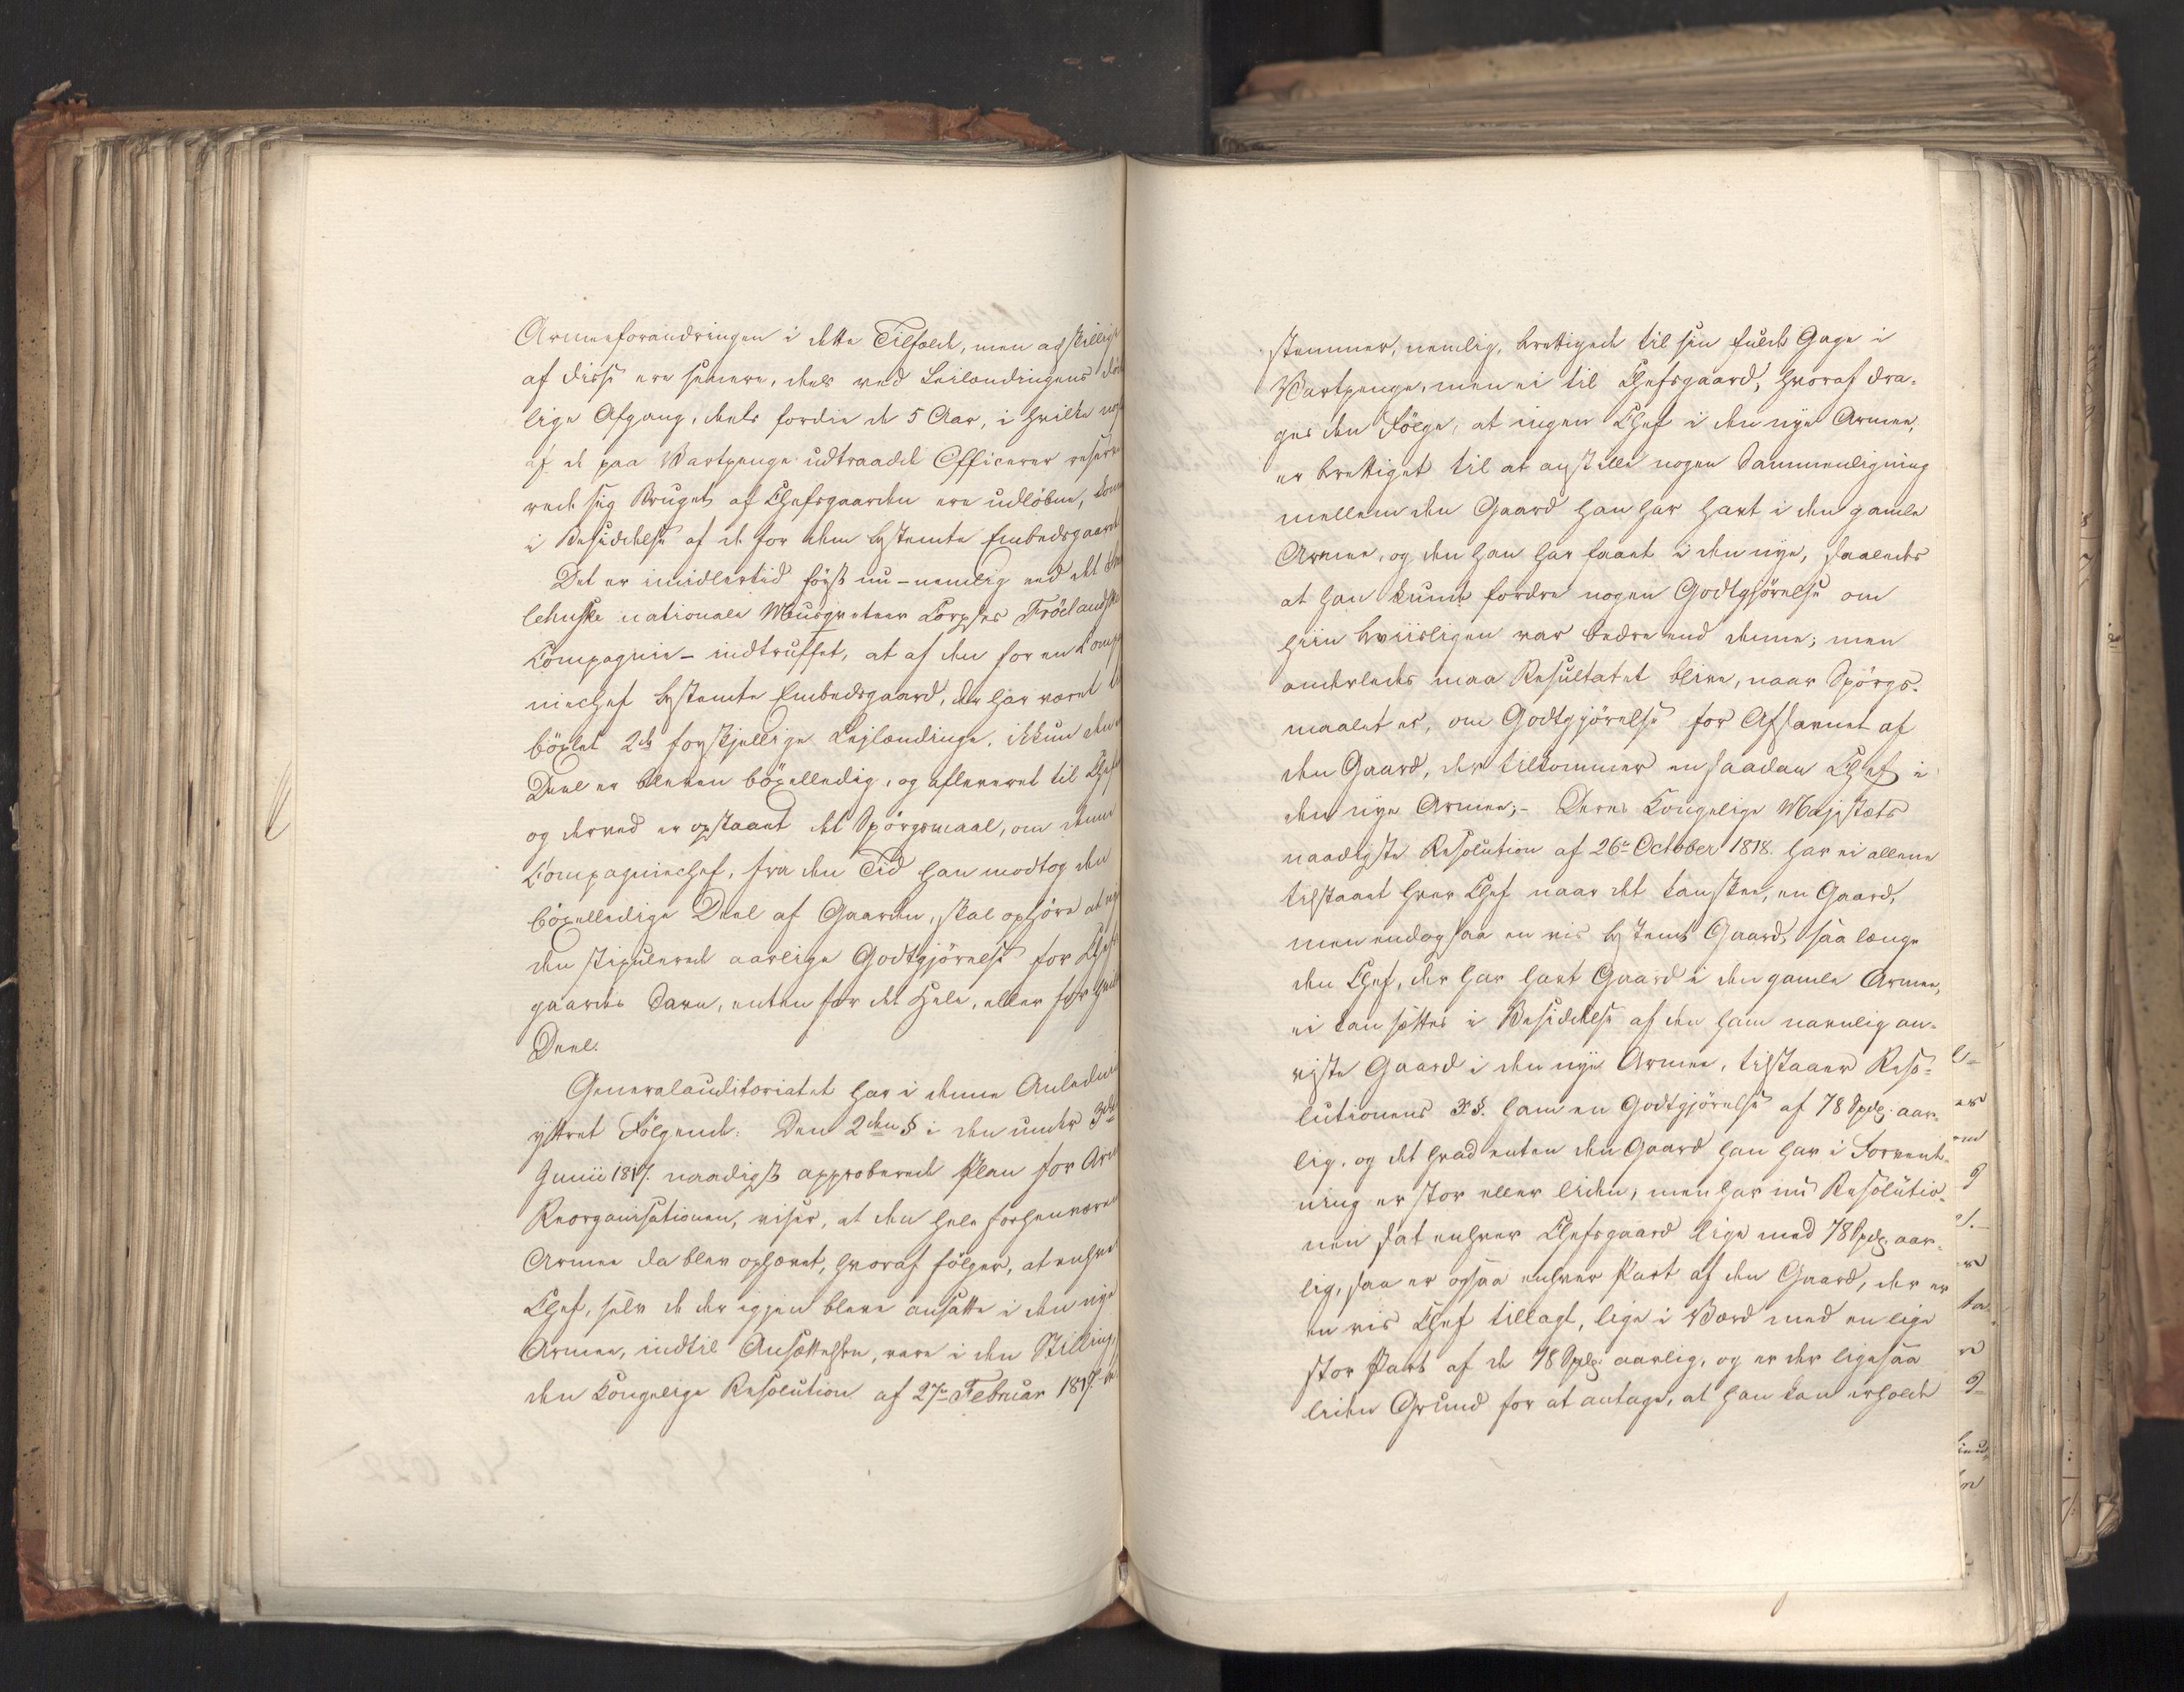 Armeeforandringen i dette Tilfælde, men adskillige
af disse ere senere, deels ved Leilændingens död
lige Afgang, deels fordie de 5 Aar, i hvilke
af de paa Vartpenge udtraadte Officerer reser
vede sig Bruget af Chefsgaarden ere udlöbne,
i Besiddelse af de for dem bestemte Embedsgaarde
Det er imidlertid först nu - nemlig ved det
lehnske nationale Musqueteer Corpses Fröelandske
Compagnie - indtruffet, at af den for en Comp
niechef bestemte Embedsgaard, der har været
böxlet 2de forskjellige Lejlændinge, ikkun den
Deel er bleven böxelledig, og afleveret til Chefen
og derved er opstaaet det Spörgsmaal, om denne
Compagniechef, fra den Tid han modtog den
böxelledige Deel af Gaarden, skal ophöre at
den stipulerede aarlige Godtgjörelse for Chefs
gaardes Savn, enten for det Hele, eller for hiin
Deel.
Generalauditoriatet har i denne Anledni
yttret Fölgende: Den 2den § i den under 3die
Junii 1817. naadigst approberede Plan for Arm
Reorganisationen, viser, at den hele forhenværen
Armee da blev ophævet, hvoraf fölger, at enhver
Chef, selv de der igjen bleve ansatte i den nye
Armee, indtil Ansættelsen, vare i den Stilling,
den Kongelige Resolution af 27de Februar 1817. be
stemmer, nemlig, berettigede til sin fulde Gage i
Vartpenge, men ei til Chefsgaard, hvoraf dra-
ges den Fölge, at ingen Chef i den nye Armee,
er berettiget til at anstille nogen Sammenligning
mellem den Gaard han har havt i den gamle
Armee, og den han har faaet i den nye, saaledes
at han kunde fordre nogen Godtgjörelse om
hiin beviisligen var bedre end denne; men
anderledes maa Resultatet blive, naar Spörgs-
maalet er, om Godtgjörelse for Afsavnet af
den Gaard, der tilkommer en saadan Chef i
den nye Armee; - Deres Kongelige Majestæts
naadigste Resolution af 26de October 1818. har ei allene
tilstaaet hver Chef naar det kan skee, en Gaard,
men endog saa en vis bestemt Gaard, saa længe
den Chef, der har havt Gaard i den gamle Armee,
ei kan sættes i Besiddelse af den ham navnlig an-
viste Gaard i den nye Armee, tilstaaer Reso-
lutionens X §. ham en Godtgjörelse af 78 Spd. aar-
lig, og det hvad enten den Gaard han har i Forvent-
ning er stor eller liden; men har nu Resolutio-
nen sat enhver Chefsgaard lige med 78 Spd. aar-
lig, saa er ogsaa enhver Part af den Gaard, der er
en vis Chef tillagt, lige i Værd med en lige
stor Part af de 78 Spd. aarlig, og er der ligesaa
liden Grund for at antage, at han kan erholde